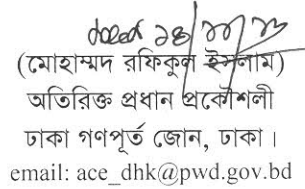 (মোহাম্মদ রফিকুল ইসলাম)
অতিরিক্ত প্রধান প্রকৌশলী
ঢাকা গণপূর্ত জোন, ঢাকা ।
email: ace_dhk@pwd.gov.bd